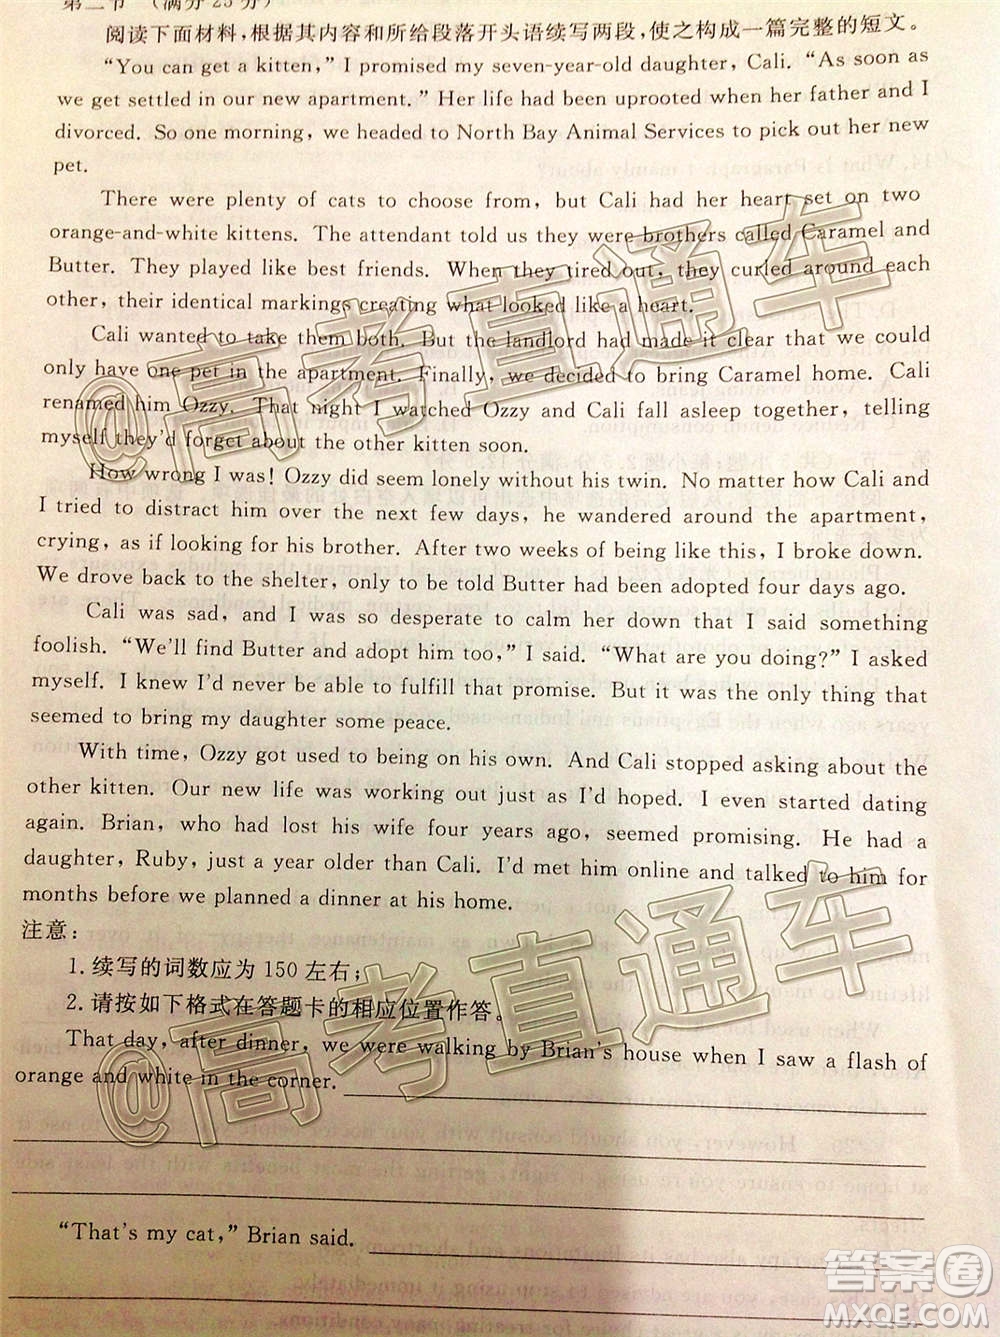 第二节 (满分 25 分)
阅读下面材料,根据其内容和所给段落开头语续写两段,使之构成一篇完整的短文。
“You can get a kitten,” I promised my seven-year-old daughter, Cali. “As soon as
we get settled in our new apartment.” Her life had been uprooted when her father and I
divorced. So one morning, we headed to North Bay Animal Services to pick out her new
pet.
There were plenty of cats to choose from, but Cali had her heart set on two
orange-and-white kittens. The attendant told us they were brothers called Caramel and
Butter. They played like best friends. When they tired out, they curled around each
other, their identical markings creating what looked like a heart.
Cali wanted to take them both. But the landlord had made it clear that we could
only have one pet in the apartment. Finally, we decided to bring Caramel home. Cali
renamed him Ozzy. That night I watched Ozzy and Cali fall asleep together, telling
myself they'd forget about the other kitten soon.
How wrong I was! Ozzy did seem lonely without his twin. No matter how Cali and
I tried to distract him over the next few days, he wandered around the apartment,
crying, as if looking for his brother. After two weeks of being like this, I broke down.
We drove back to the shelter, only to be told Butter had been adopted four days ago.
Cali was sad, and I was so desperate to calm her down that I said something
foolish. “We'll find Butter and adopt him too,” I said. “What are you doing?” I asked
myself. I knew I'd never be able to fulfill that promise. But it was the only thing that
seemed to bring my daughter some peace.
With time, Ozzy got used to being on his own. And Cali stopped asking about the
other kitten. Our new life was working out just as I'd hoped. I even started dating
again. Brian, who had lost his wife four years ago, seemed promising. He had a
daughter, Ruby, just a year older than Cali. I'd met him online and talked to him for
months before we planned a dinner at his home.
注意:
1. 续写的词数应为 150 左右;
2. 请按如下格式在答题卡的相应位置作答。
That day, after dinner, we were walking by Brian's house when I saw a flash of
orange and white in the corner.
“That's my cat,” Brian said.
@高考直通车
@高考直通车
答案圈
MXQE.COM